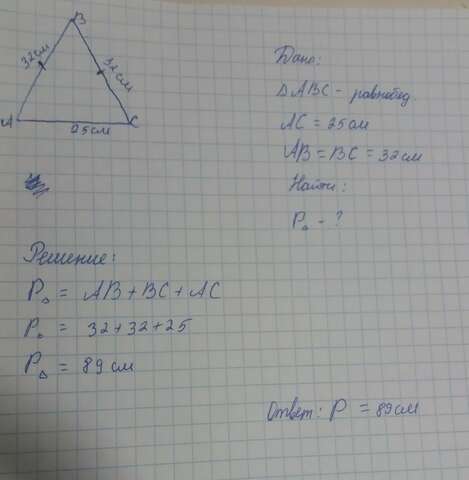 B
32см
32см
A
C
25см
Дано:
△ABC - равнобед.
AC = 25см
AB = BC = 32см
Найти:
P△ - ?
Решение:
P△ = AB + BC + AC
P△ = 32+32+25
P△ = 89 см
Ответ: P = 89см